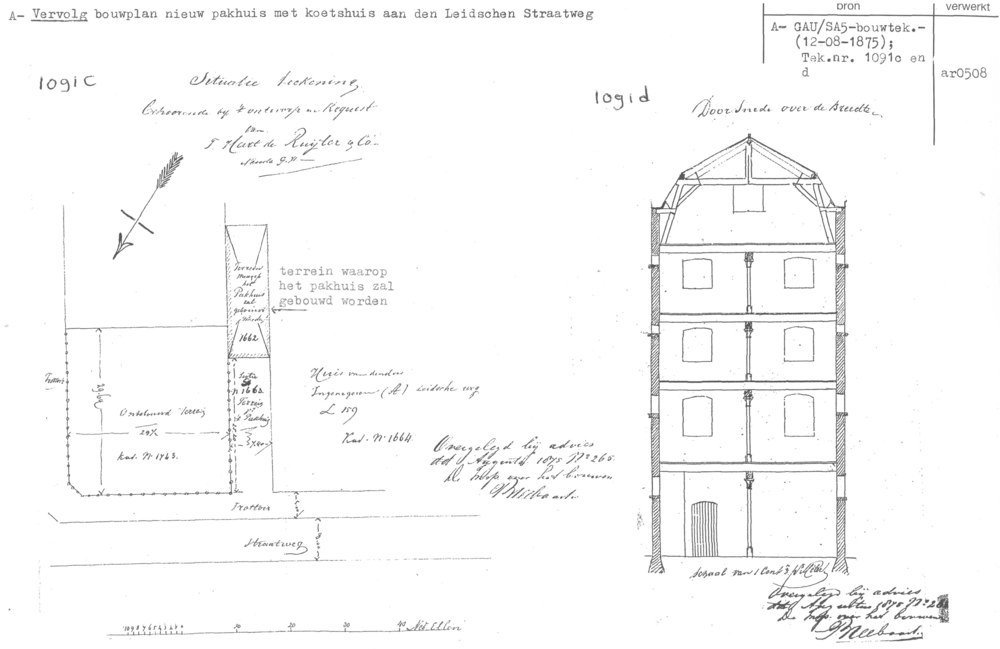 A- Vervolg bouwplan nieuw pakhuis met koetshuis aan den Leidschen Straatweg
bron
verwerkt
A- GAU/SA5-bouwtek.-
(12-08-1875);
Tek.nr. 1091c en
d
ar0508
1091C
Situatie teekening
Behoorende bij 't ontwerp en Request
van
T Hart de Ruijter & Co
terrein waarop
het pakhuis zal
gebouwd worden
Terrein
waarop
het
Pakhuis
zal
gebouwd
worden
1662
Onbebouwd Terrein
Kad. Nº 1763.
Nº 1663
Terrein
Huis van den
Ingenegeren (A) Leidsche weg
L 159
Kad. Nº 1664
Overgelegd bij advies
dd Augustus 1875 Nº 265.
De Insp. over het bouwen
Trottoir
Straatweg
10 20 30 40 Ned. Ellen
1091d
Door Snede over de Breedte
Schaal van 1 Cent
Overgelegd bij advies
dd Augustus 1875 Nº
De Insp. over het bouwen